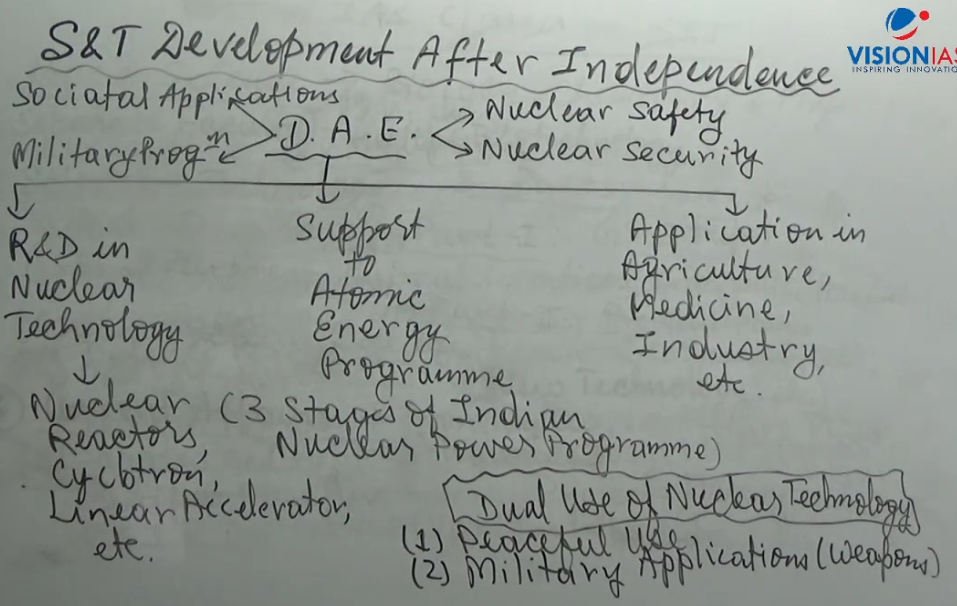 S&T Development After Independence
VISIONIAS
INSPIRING INNOVATIO
Sociatal Applications
Military Progm
D.A.E.
Nuclear Safety
Nuclear Security
R&D in
Nuclear
Technology
Nuclear
Reactors,
Cyclotron,
Linear Accelerator,
etc.
Support
to
Atomic
Energy
Programme
(3 Stages of Indian
Nuclear Power Programme)
Application in
Agriculture,
Medicine,
Industry,
etc.
Dual Use of Nuclear Technology
(1) Peaceful Use
(2) Military Applications (Weapons)